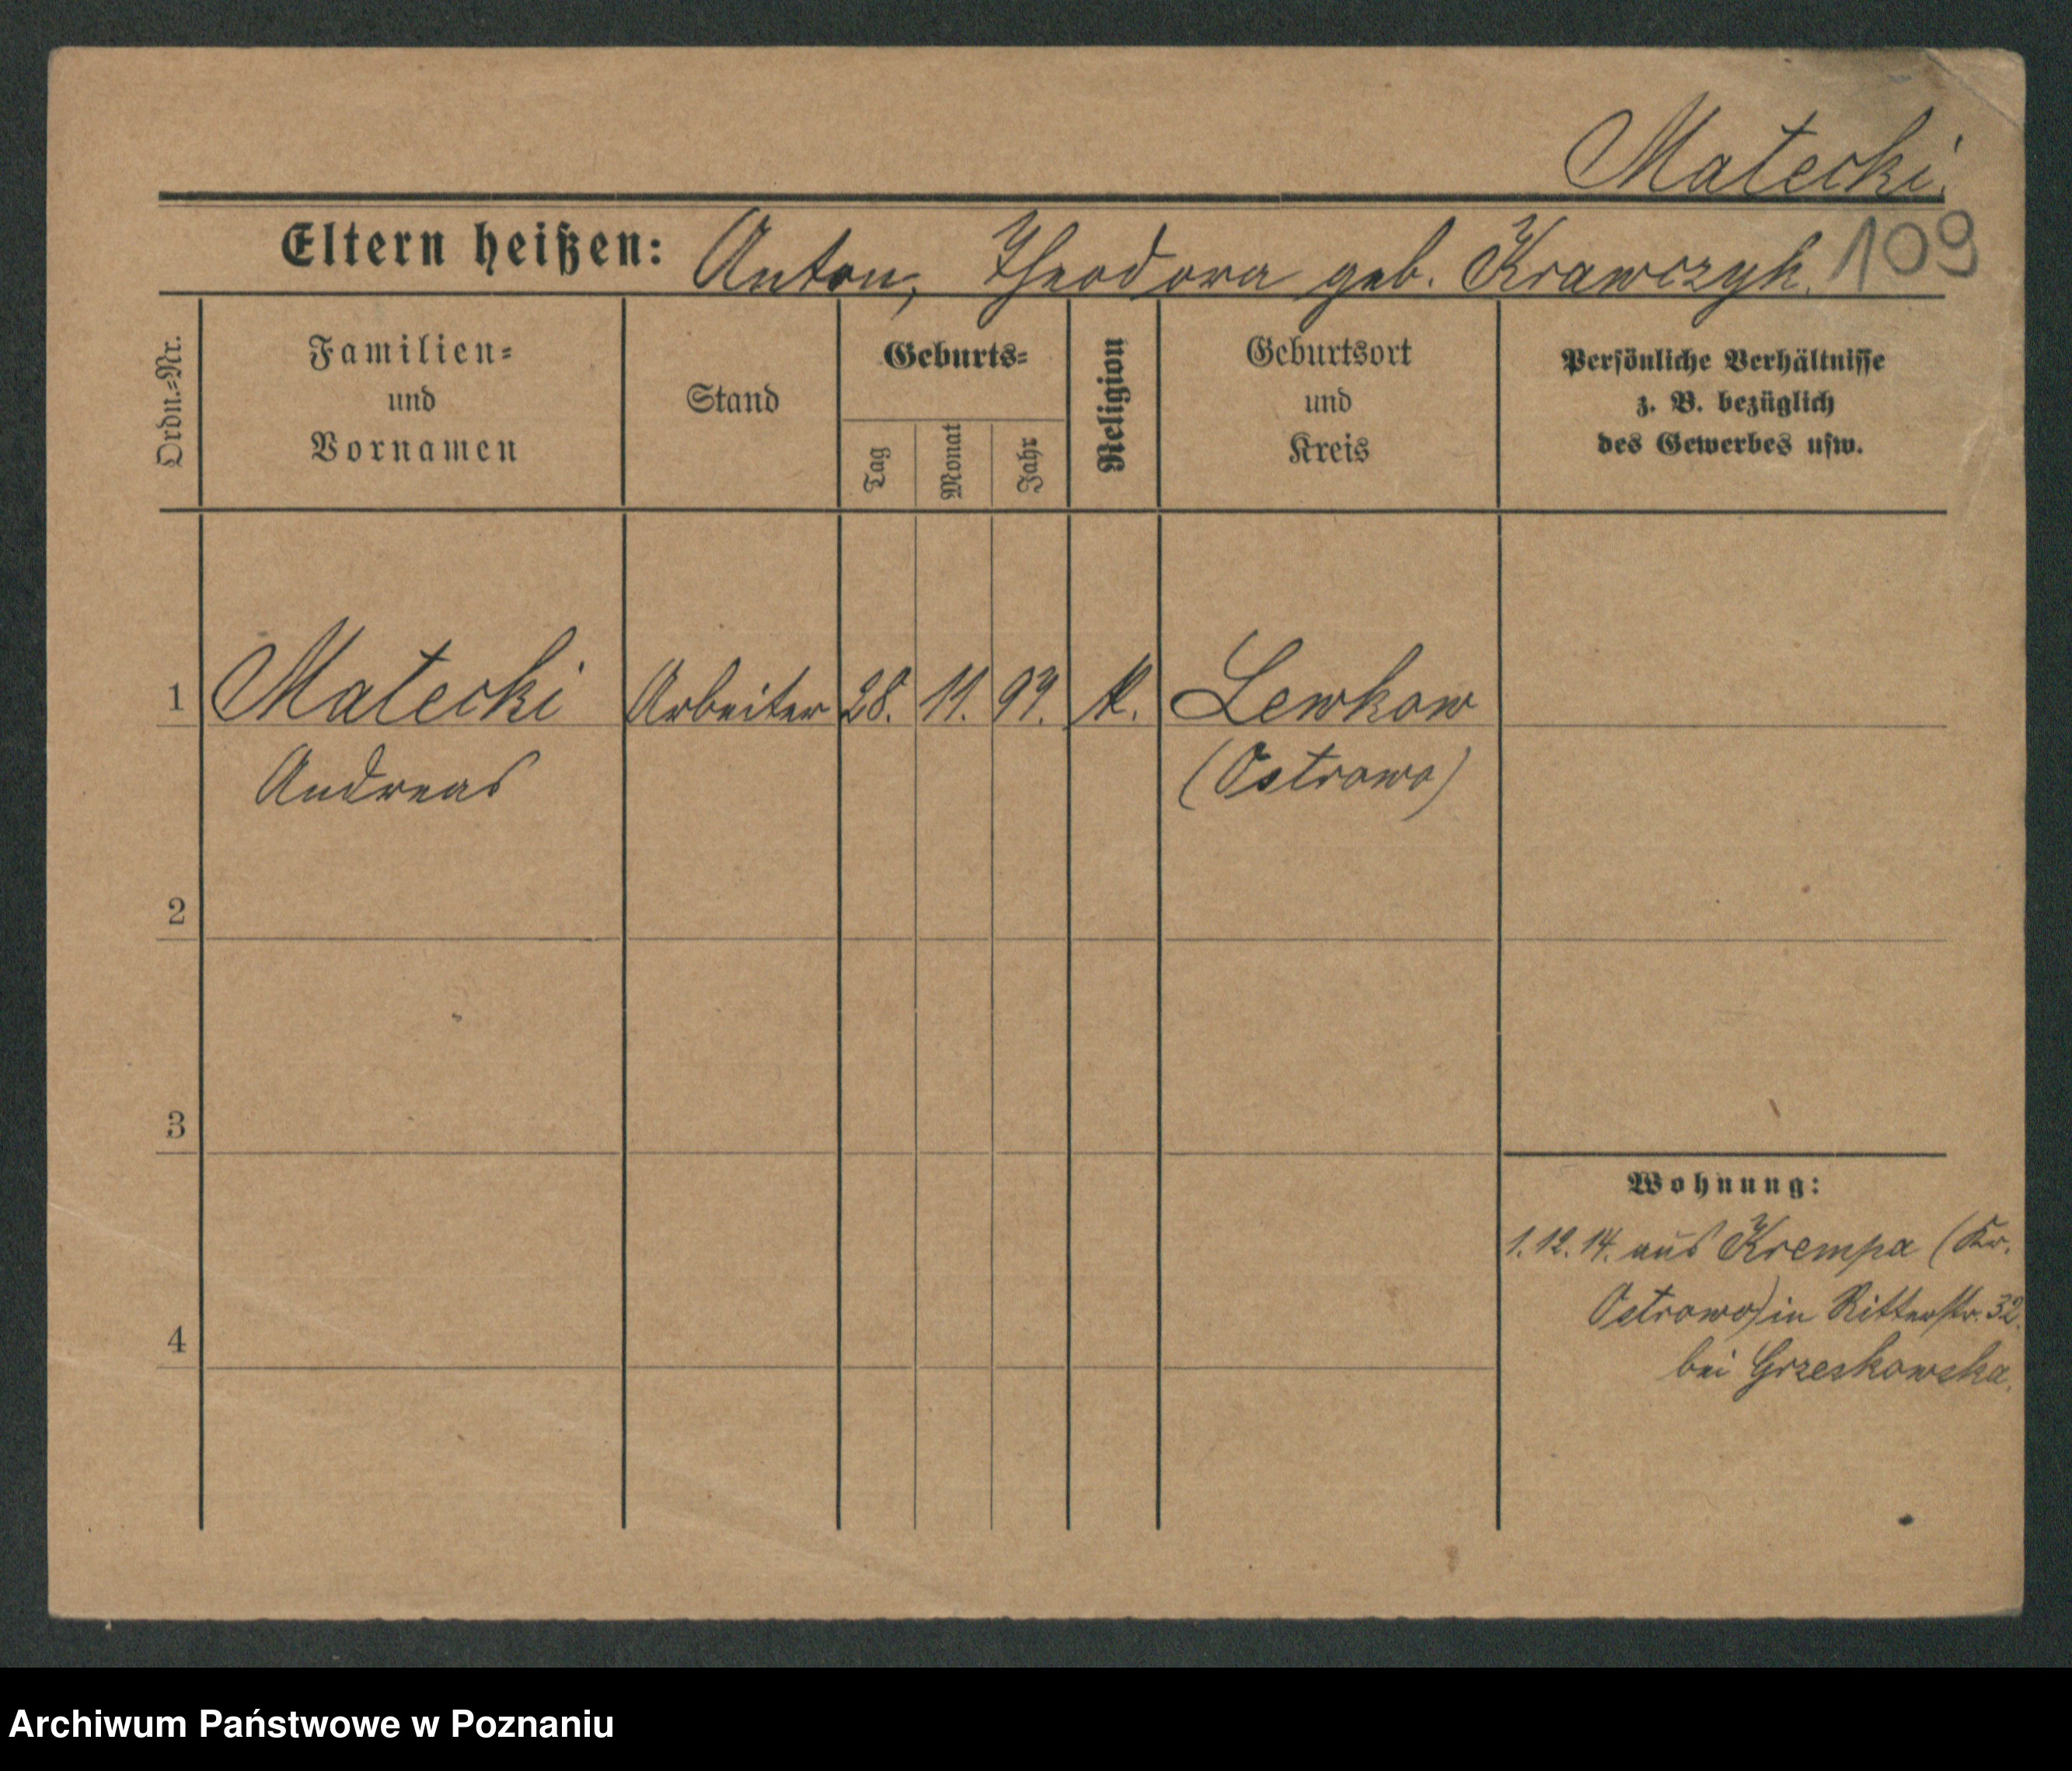 Matecki.
Eltern heißen: Anton, Theodora geb. Krawczyk.
109
Ordn.=Nr.
Familien=
und
Vornamen
Stand
Geburts=
Tag
Monat
Jahr
Religion
Geburtsort
und
Kreis
Persönliche Verhältnisse
z. B. bezüglich
des Gewerbes usw.
1 Matecki Arbeiter 28. 11. 97. K. Lewkow
Andreas (Ostrowo)
2
3
Wohnung:
1. 12. 14. aus Krempa (Kr.
Ostrowo) in Ritterstr. 32.
4
bei Grzeskowska.
Archiwum Państwowe w Poznaniu